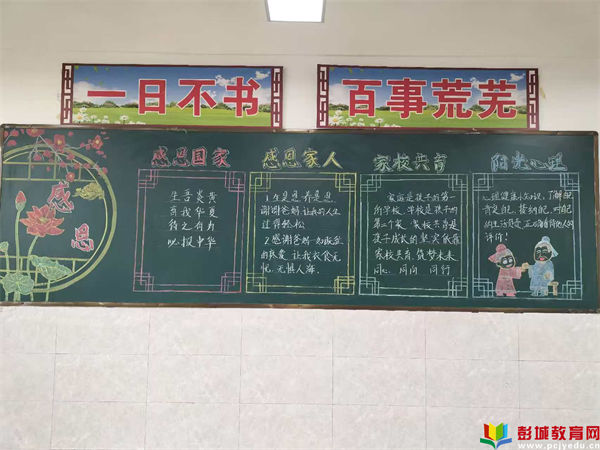 一日不书
百事荒芜
感恩
感恩国家
生吾炎黄
育我华夏
待之有为
必报中华
感恩家人
1.生是恩,养是恩,
谢谢爸妈让我的人生
过得轻松
2.感谢爸妈
让我衣食无
忧,无惧人海。
家校共育
家庭是孩子的第一
所学校,学校是孩子的
第二个家,家校共育是
孩子成长的坚实依靠
家校共育,筑梦未来
同心 同向 同行
阳光心理
心理健康小知识,了解自己
肯定自己,接纳自己,对自己
的生活负责,正确看待他人的
评价!
彭城教育网
www.pcjyedu.cn